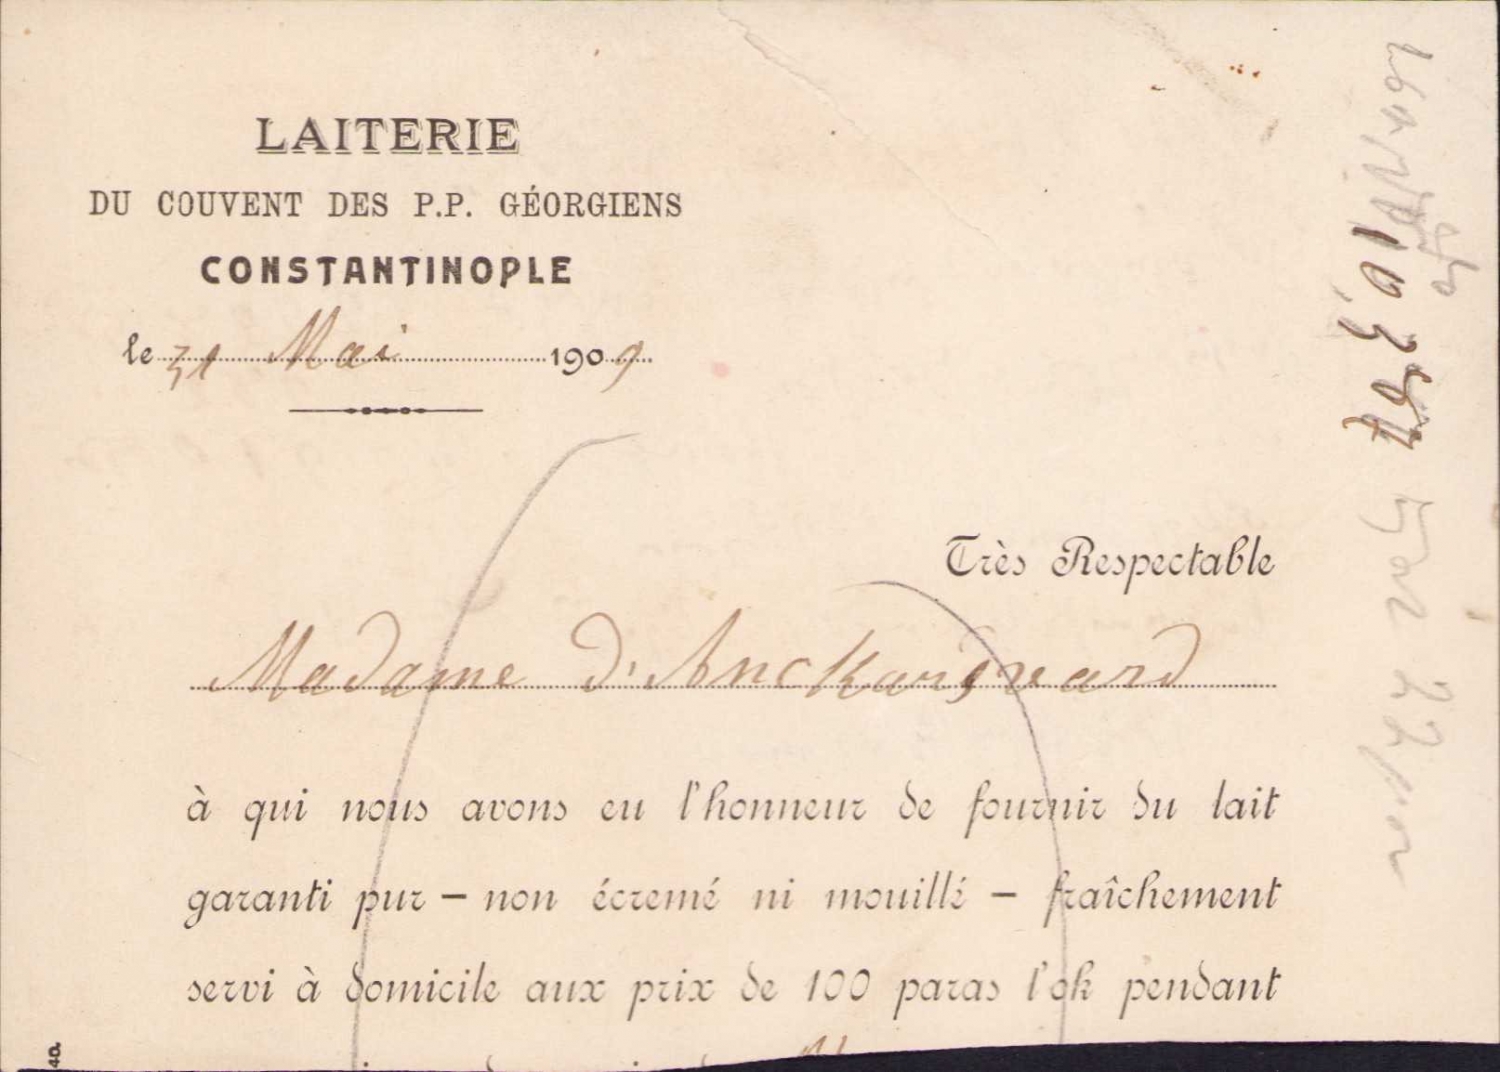 LAITERIE
DU COUVENT DES P.P. GÉORGIENS
CONSTANTINOPLE
le 31 Mai 1909
Très Respectable
Madame d'Anckarsvard
à qui nous avons eu l'honneur de fournir du lait
garanti pur — non écremé ni mouillé — fraîchement
servi à domicile aux prix de 100 paras l'ok pendant
40.